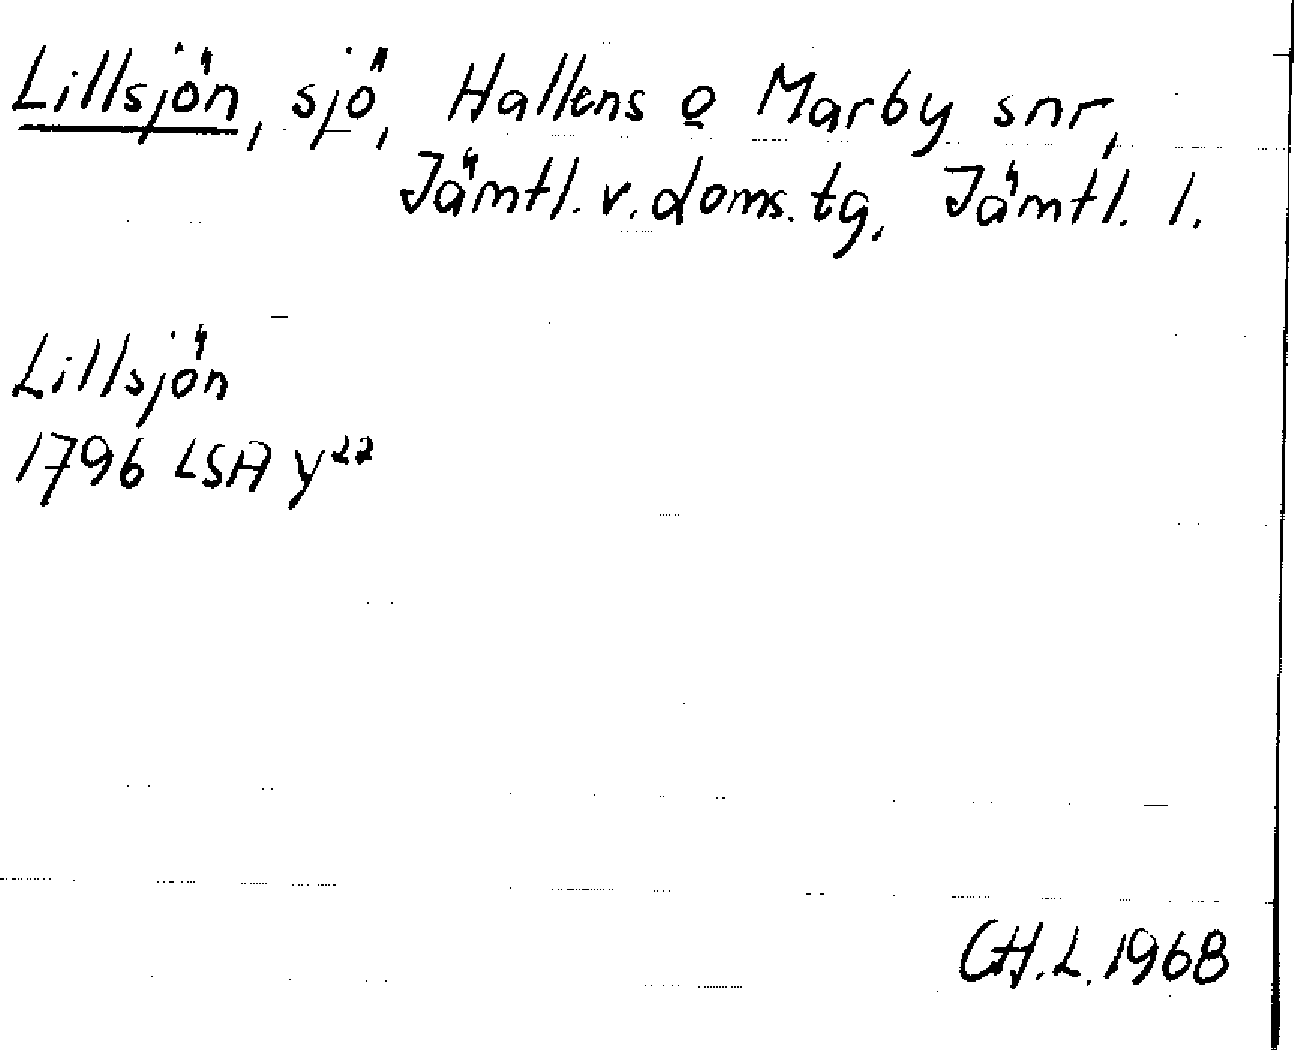 Lillsjön, sjö, Hallens o Marby snr,
Jämtl. v. doms. tg, Jämtl. l.
Lillsjön
1796 LSA y²²
CH.L. 1968